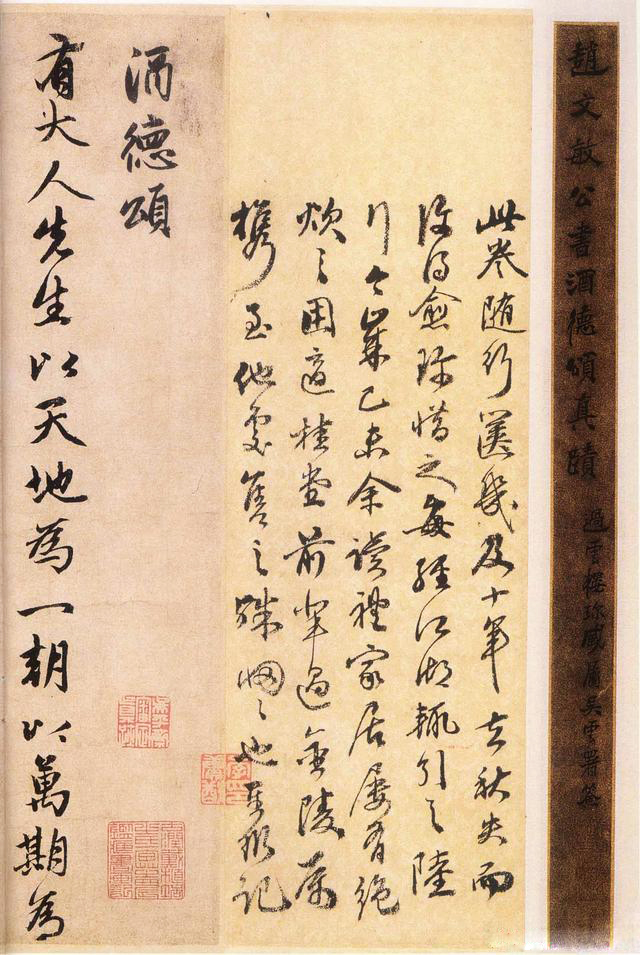 趙文敏公書酒德頌真蹟 過雲樓珍藏屬吳雲署簽
此卷随行篋幾及十年去秋失而
復得愈珎惜之每經江湖輒引之陸
行今嵗己未余讀禮家居屢有絶
炊之困適桂堂前輩過金陵属
攜至他處售之殊惘〻也 記
酒德頌
有大人先生以天地為一朝以萬期為